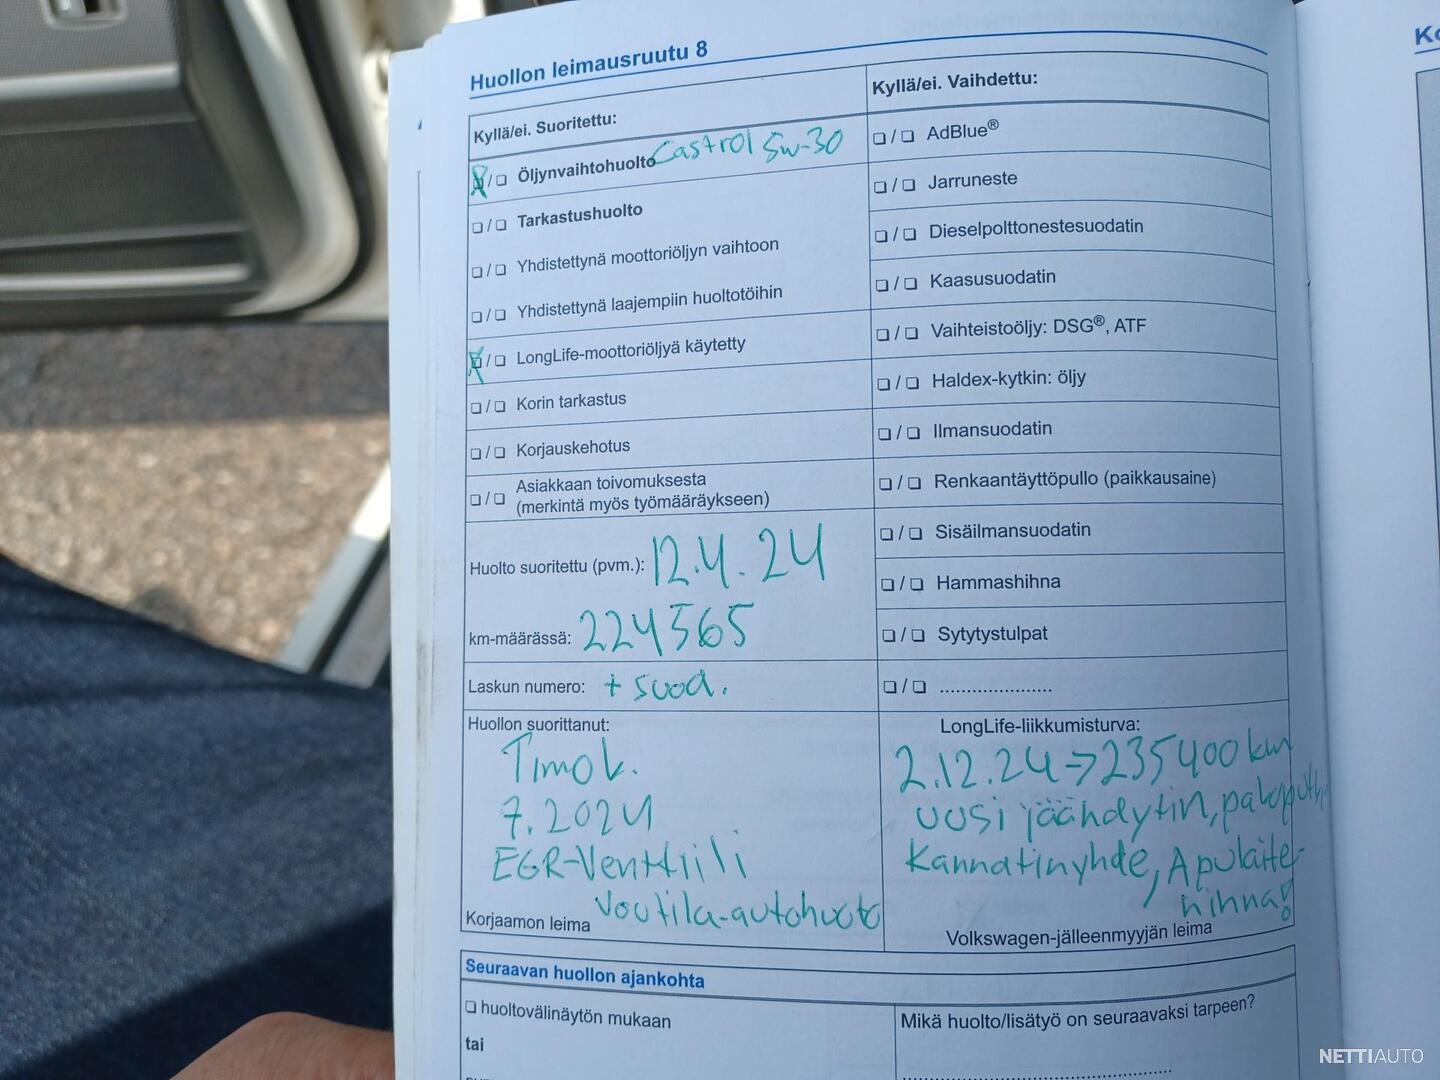 Huollon leimausruutu 8
Kyllä/ei. Suoritettu:
Öljynvaihtohuolto Castrol 5w-30
Tarkastushuolto
Yhdistettynä moottoriöljyn vaihtoon
Yhdistettynä laajempiin huoltotöihin
LongLife-moottoriöljyä käytetty
Korin tarkastus
Korjauskehotus
Asiakkaan toivomuksesta
(merkintä myös työmääräykseen)
Huolto suoritettu (pvm.): 12.4.24
km-määrässä: 224365
Laskun numero: + suod.
Huollon suorittanut:
Timo k.
7.2024
EGR-Venttiili
Voutila-autohuolto
Korjaamon leima
Kyllä/ei. Vaihdettu:
AdBlue®
Jarruneste
Dieselpolttonestesuodatin
Kaasusuodatin
Vaihteistoöljy: DSG®, ATF
Haldex-kytkin: öljy
Ilmansuodatin
Renkaantäyttöpullo (paikkausaine)
Sisäilmansuodatin
Hammashihna
Sytytystulpat
.....................
LongLife-liikkumisturva:
2.12.24→235400 km
uusi jäähdytin, pakoputki
Kannatinyhde, Apulaite-
hihna!
Volkswagen-jälleenmyyjän leima
Seuraavan huollon ajankohta
huoltovälinäytön mukaan
tai
Mikä huolto/lisätyö on seuraavaksi tarpeen?
NETTIAUTO